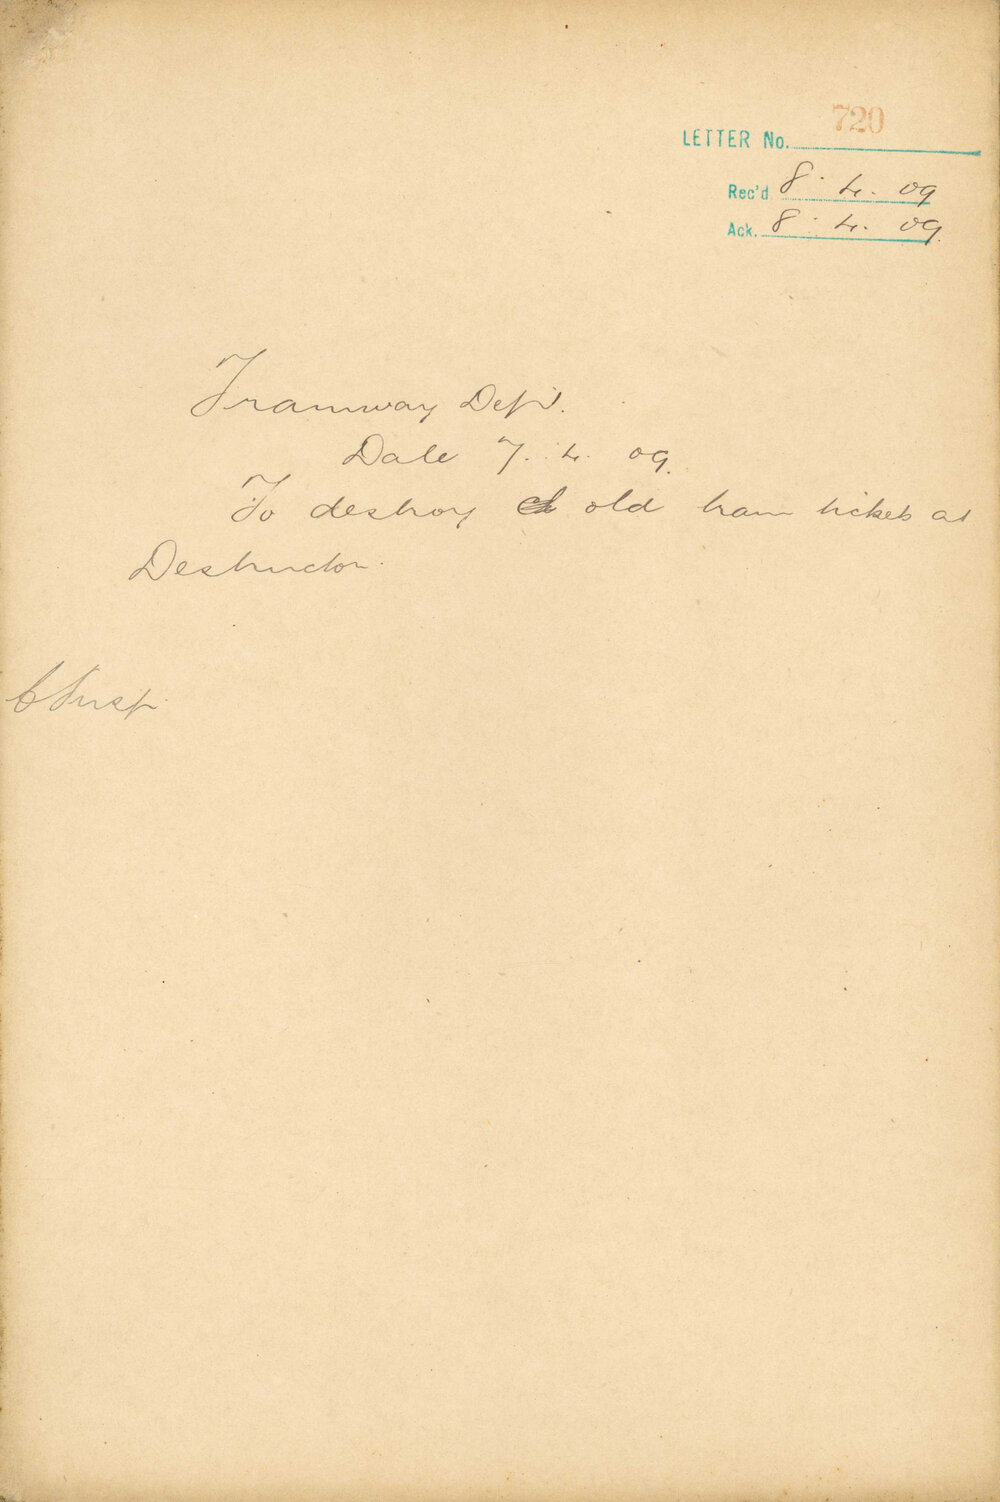 720
LETTER No.
Rec'd 8. 4. 09
Ack. 8. 4. 09.
Tramway Dept.
Date 7. 4. 09.
To destroy old tram tickets at
Destructor.
C Insp.